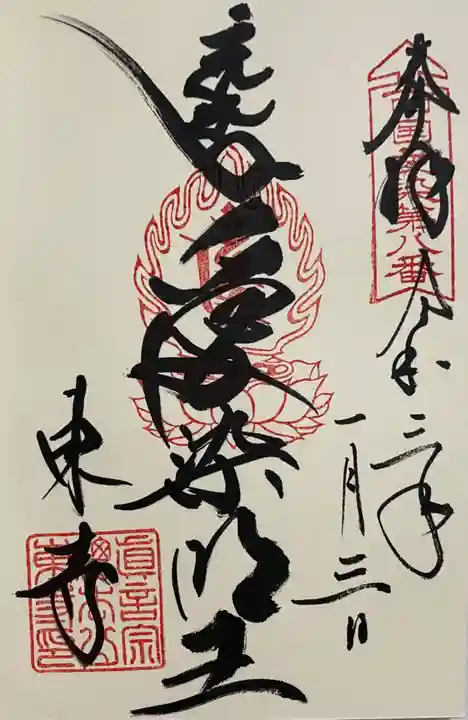 奉拝
西国愛染第八番
令和二年
一月三日
愛染明王
東寺
真言宗